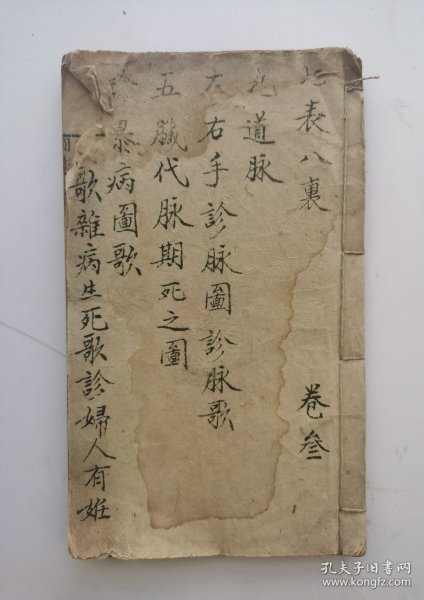 七表八裏
九道脉
左右手診脉圖診脉歌
五臟代脉期死之圖
診暴病圖歌
歌雜病生死歌診婦人有妊
卷叄
孔夫子旧书网
www.kongfz.com